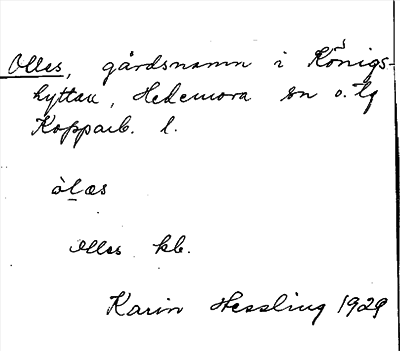 Olles, gårdsnamn i Königs-
hyttan, Hedemora sn o. tg
Kopparb. l.
òlæs
Olles kb.
Karin Hessling 1929